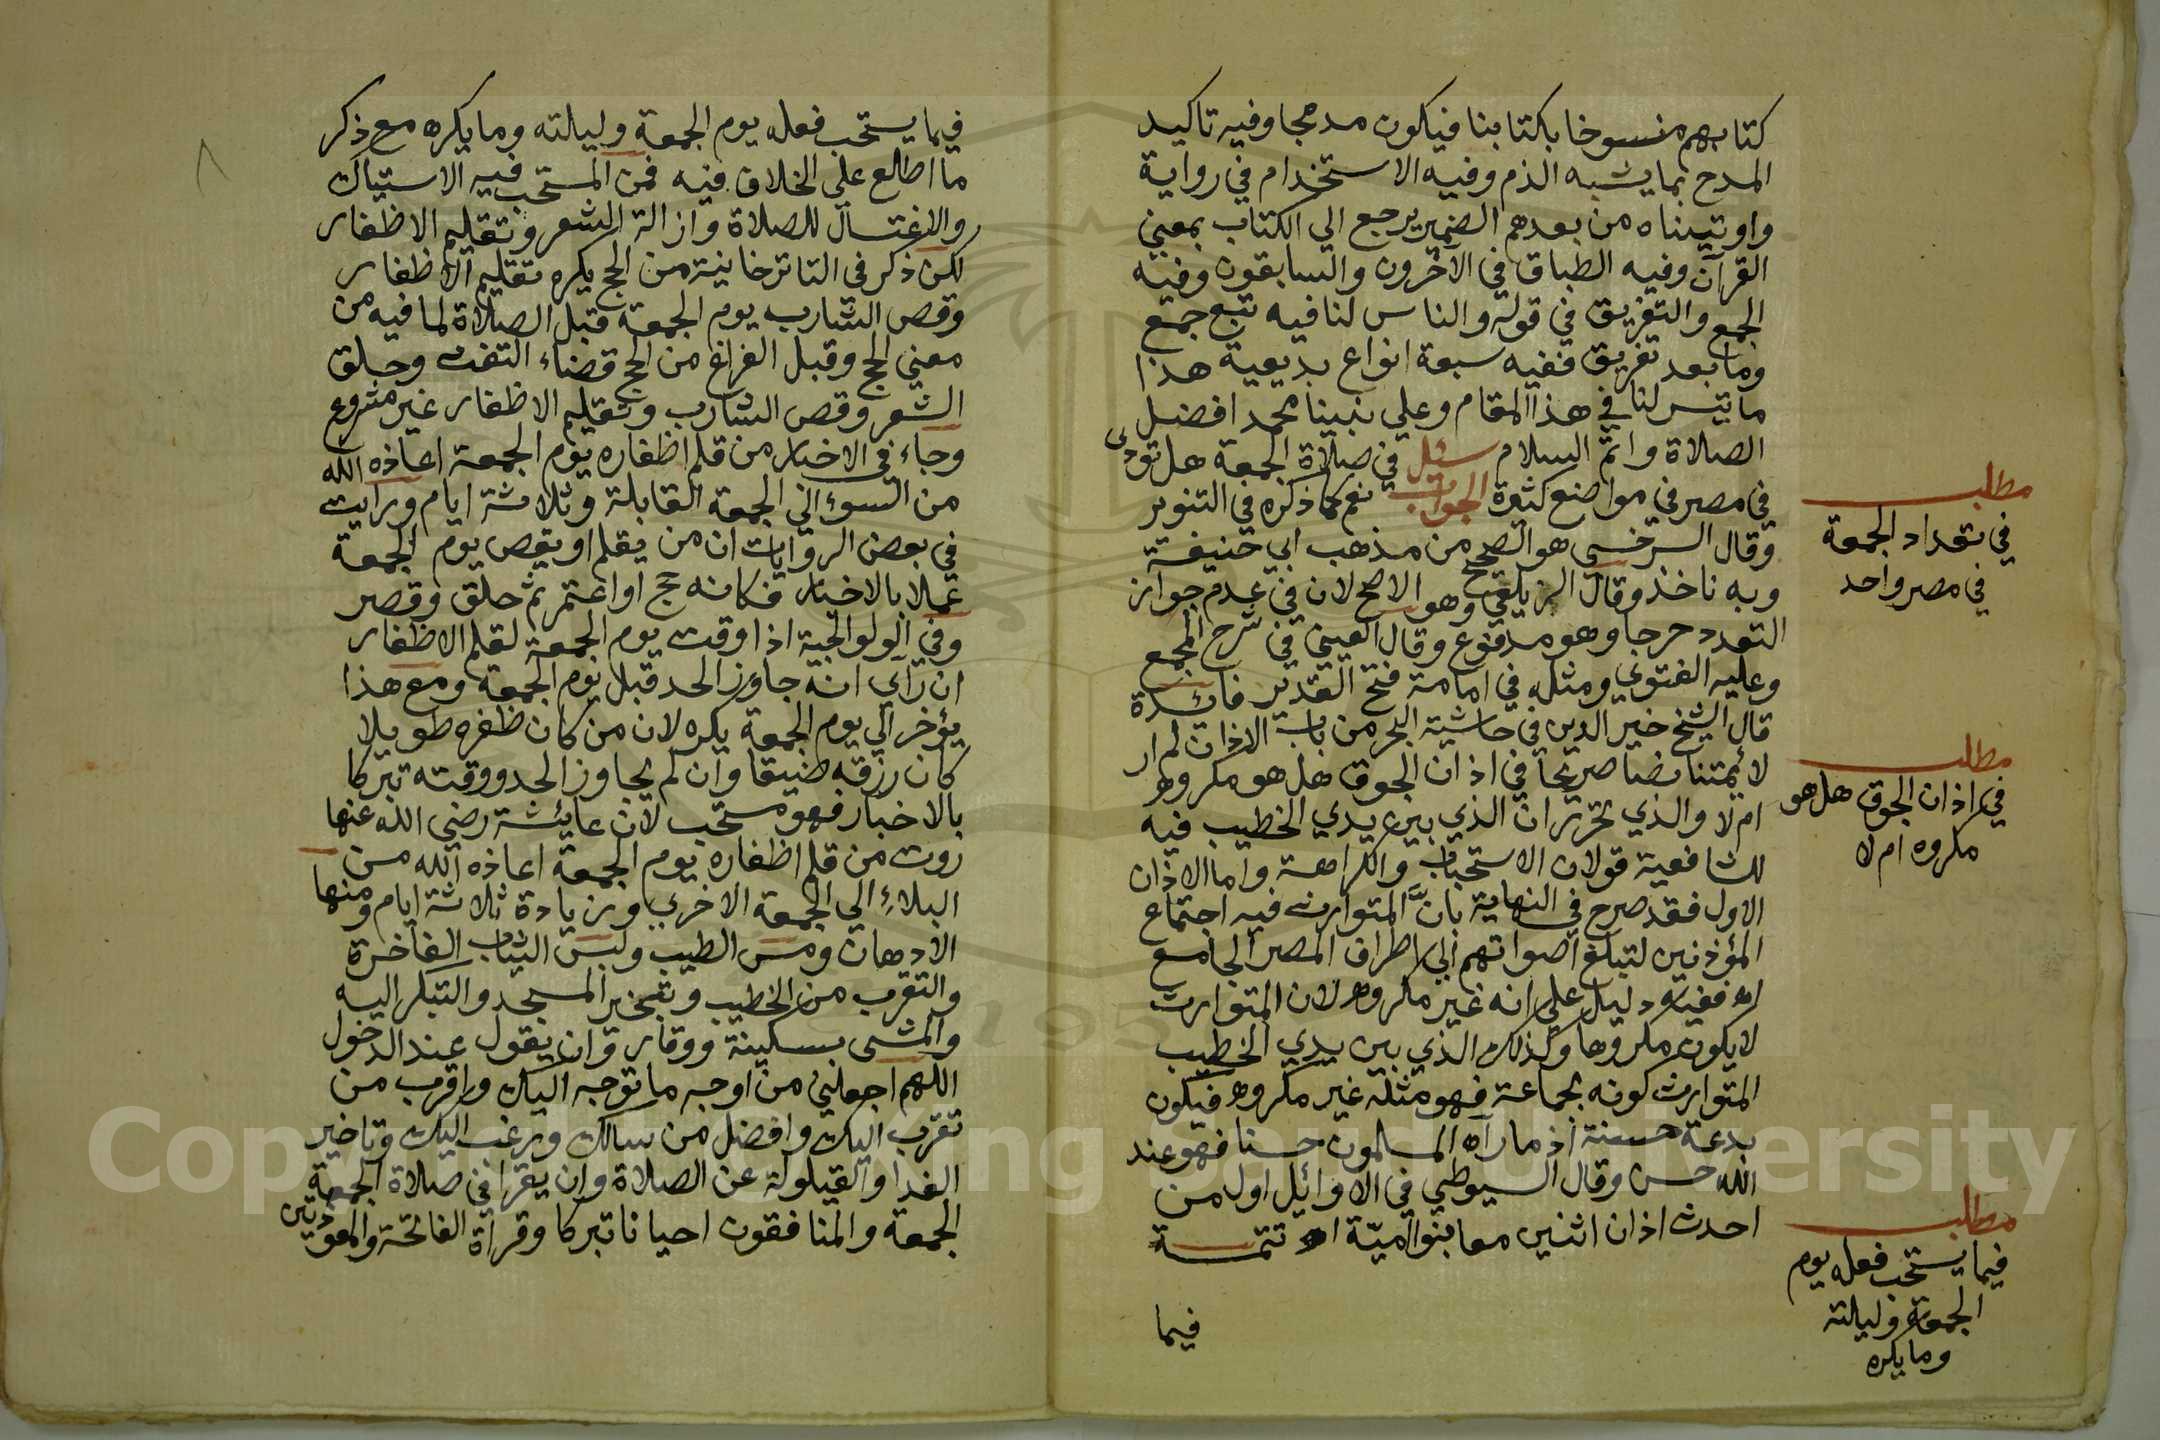 كتابهم منسوخا بكتابنا فيكون مدمجا وفيه تاكيد
المدح بما يشبه الذم وفيه الاستخدام في رواية
واوتيناه من بعدهم الضمير يرجع الي الكتاب بمعني
القرآن وفيه الطباق في الآخرون والسابقون وفيه
الجمع والتفريق في قوله والناس لنا فيه تبع جمع
وما بعد تفريق ففيه سبعة انواع بديعية هذا
ما تيسر لنا في هذا المقام وعلي نبينا محمد افضل
الصلاة واتم السلام سئل في صلاة الجمعة هل تؤدي
في مصر في مواضع كثيرة الجواب نعم كما ذكره في التنوير
وقال السرخسي هو الصحيح من مذهب ابي حنيفة
وبه ناخذ وقال الزيلعي وهو الاصح لان في عدم جواز
التعدد حرجا وهو مدفوع وقال العيني في شرح المجمع
وعليه الفتوي ومثله في امامة فتح القدير فائدة
قال الشيخ خير الدين في حاشية البحر من باب الاذان لم ار
لائمتنا نصا صريحا في اذان الجوق هل هو مكروه
ام لا والذي تحرر ان الذي بين يدي الخطيب فيه
للشافعية قولان الاستحباب والكراهة واما الاذان
الاول فقد صرح في النهاية بانَّ المتوارث فيه اجتماع
المؤذنين لتبلغ اصواتهم الي اطراف المصر الجامع
اه ففيه دليل علي انه غير مكروه لان المتوارث
لا يكون مكروها وكذلك الذي بين يدي الخطيب
المتوارث كونه بجماعة فهو مثله غير مكروه فيكون
بدعة حسنة اذ ما رآه المسلمون حسنا فهو عند
الله حسن وقال السيوطي في الاوائل اول من
احدث اذان اثنين معا بنوا اميّة اه تتمة
فيما
مطلب
في تعداد الجمعة
في مصر واحد
مطلب
في اذان الجوق هل هو
مكروه ام لا
مطلب
فيما يستحب فعله يوم
الجمعة وليلته
وما يكره
٨
فيما يستحب فعله يوم الجمعة وليلته وما يكره مع ذكر
ما اطالع علي الخلاف فيه فمن المستحب فيه الاستياك
والاغتسال للصلاة وازالة الشعر وتقليم الاظفار
لكن ذكر في التاترخانية من الحج يكره تقليم الاظفار
وقص الشارب يوم الجمعة قبل الصلاة لما فيه من
معني الحج وقبل الفراغ من الحج قضاء التفث وحلق
الشعر وقص الشارب وتقليم الاظفار غير مشروع
وجاء في الاخبار من قلم اظفاره يوم الجمعة اعاذه الله
من السوء الي الجمعة القابلة وثلاثة ايام ورايت
في بعض الروايات ان من يقلم او يقص يوم الجمعة
عملا بالاخبار فكانه حج او اعتمر ثم حلق وقصر
وفي الولوالجية اذا وقت يوم الجمعة لقلم الاظفار
ان رآي انه جاوز الحد قبل يوم الجمعة ومع هذا
يؤخر الي يوم الجمعة يكره لان من كان ظفره طويلا
كان رزقه ضيقا وان لم يجاوز الحد ووقته تبركا
بالاخبار فهو مستحب لان عايشة رضي الله عنها
روت من قلم اظفاره يوم الجمعة اعاذه الله من
البلاء الي الجمعة الاخري وزيادة ثلاثة ايام ومنها
الادهان ومس الطيب ولبس الثياب الفاخرة
والتقرب من الخطيب وتبخير المسجد والتبكر اليه
والمشي بسكينة ووقار وان يقول عند الدخول
اللهم اجعلني من اوجه ما توجه اليك واقرب من
تقرب اليك وافضل من سالك ورغب اليك وتاخير
الغدا والقيلولة عن الصلاة وان يقرا في صلاة الجمعة
الجمعة والمنافقون احيانا تبركا وقراة الفاتحة والمعوذتين
Copyright © King Saud University